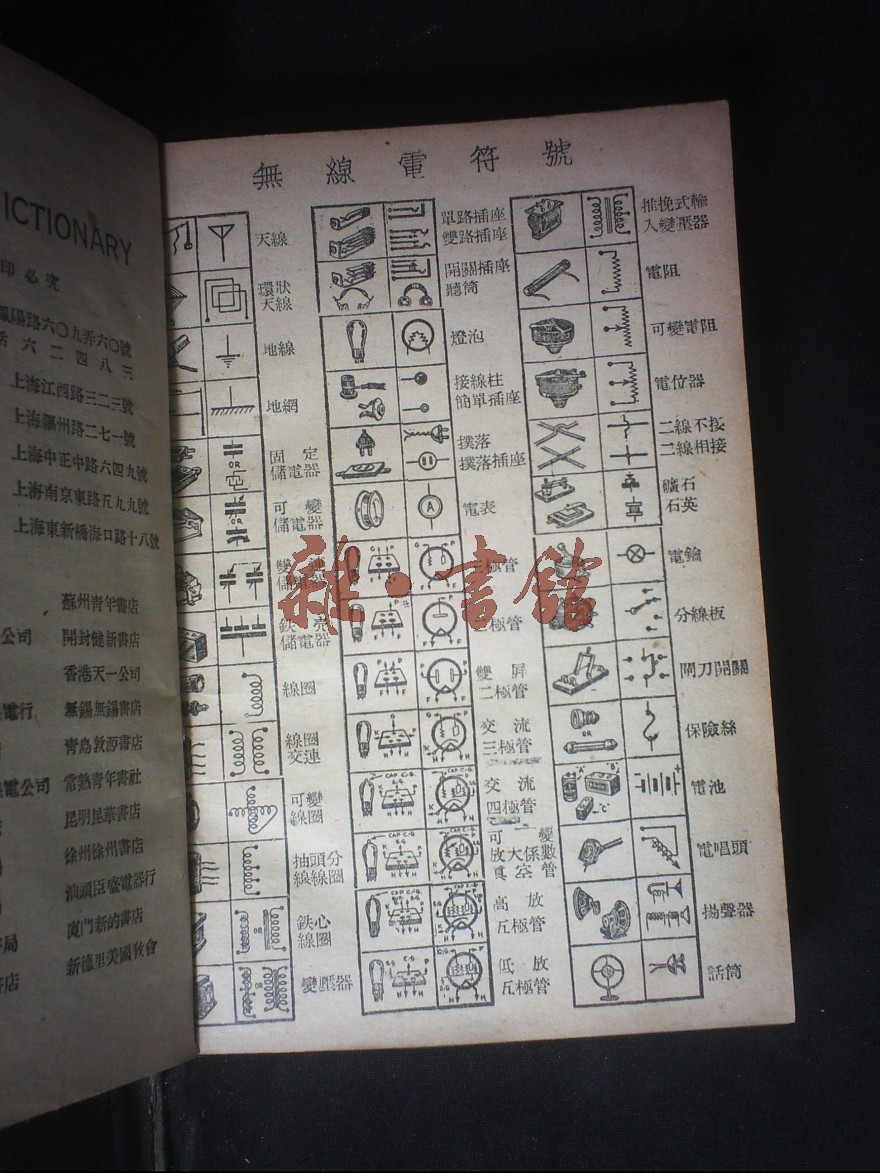 DICTIONARY
印必究
路六〇九弄六〇號
六二四八三
上海江西路三二三號
上海福州路二七一號
上海中正中路六四九號
上海南京東路五九九號
上海東新橋海口路十八號
蘇州青年書店
公司 開封健新書店
香港天一公司
電行 無錫無錫書店
青島敦源書店
電公司 常熟青年書社
昆明昆華書店
徐州徐州書店
汕頭臣盛電器行
廈門新的書店
局 新德里美國教會
書店
無線電符號
天線
環狀
天線
地線
地網
固定
儲電器
OR
可變
儲電器
OR
雙連
儲電器
鉄壳
儲電器
線圈
線圈
交連
可變
線圈
抽頭分
線線圈
鉄心
線圈
變壓器
單路插座
雙路插座
開關插座
聽筒
燈泡
接線柱
簡單插座
撲落
撲落插座
電表
A
三極管
二極管
雙屏
二極管
交流
三極管
交流
四極管
可變
放大係數
真空管
高放
五極管
低放
五極管
推挽式輸
入變壓器
電阻
可變電阻
電位器
二線不接
二線相接
礦石
石英
電鑰
分線板
閘刀開關
保險絲
OR
電池
"A" "B"
"C"
電唱頭
揚聲器
話筒
雜·書館